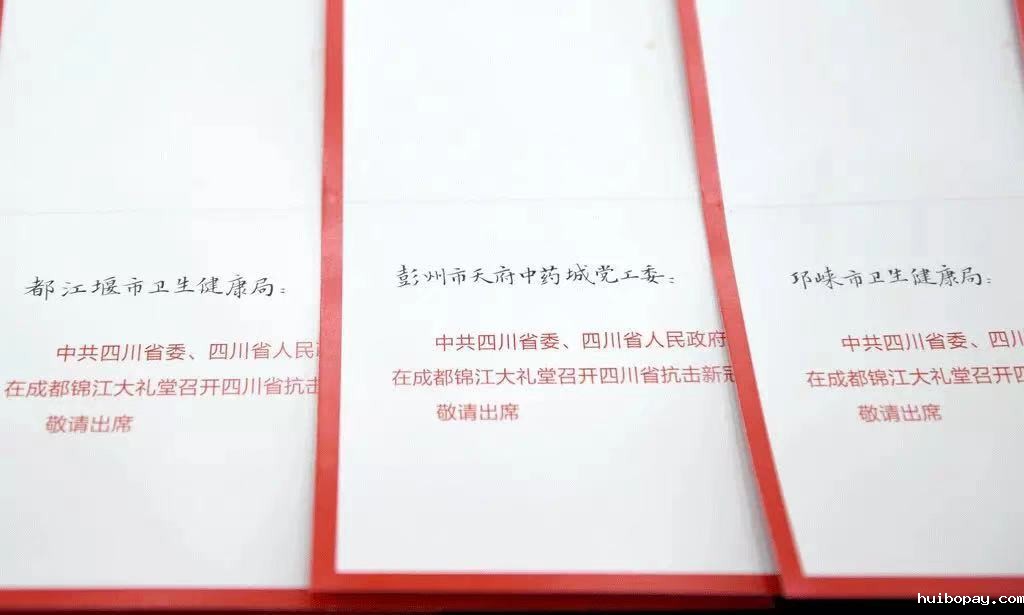 都江堰市卫生健康局：
中共四川省委、四川省人民
在成都锦江大礼堂召开四川省抗击
敬请出席
彭州市天府中药城党工委：
中共四川省委、四川省人民政府
在成都锦江大礼堂召开四川省抗击新冠
敬请出席
邛崃市卫生健康局：
中共四川省委、四川
在成都锦江大礼堂召开四
敬请出席
huibopay.com